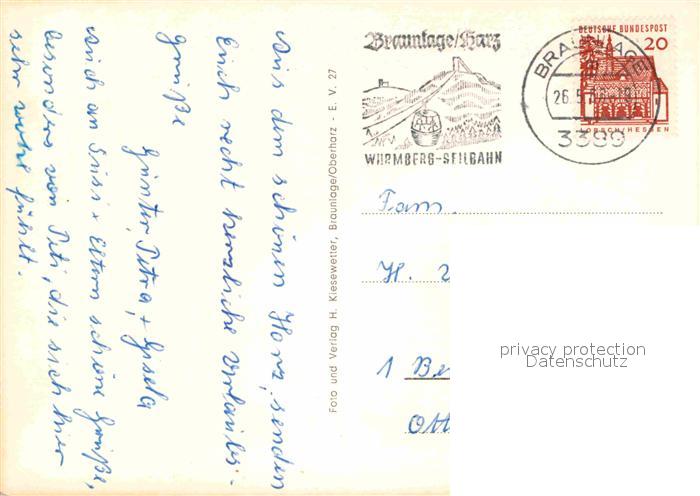 Aus dem schönen Harz senden
Euch recht herzliche Urlaubs-
grüße
Günter, Petra, + Gisela
Auch an Susi + Eltern schöne Grüße,
besonders von Peti, die sich hier
sehr wohl fühlt.
Foto und Verlag H. Kiesewetter, Braunlage/Oberharz - E. V. 27
Braunlage/Harz
WURMBERG-SEILBAHN
BRAUNLAGE
26.5.
3389
DEUTSCHE BUNDESPOST
20
LORSCH/HESSEN
Fam.
H.
1 Be
Ott
privacy protection
Datenschutz